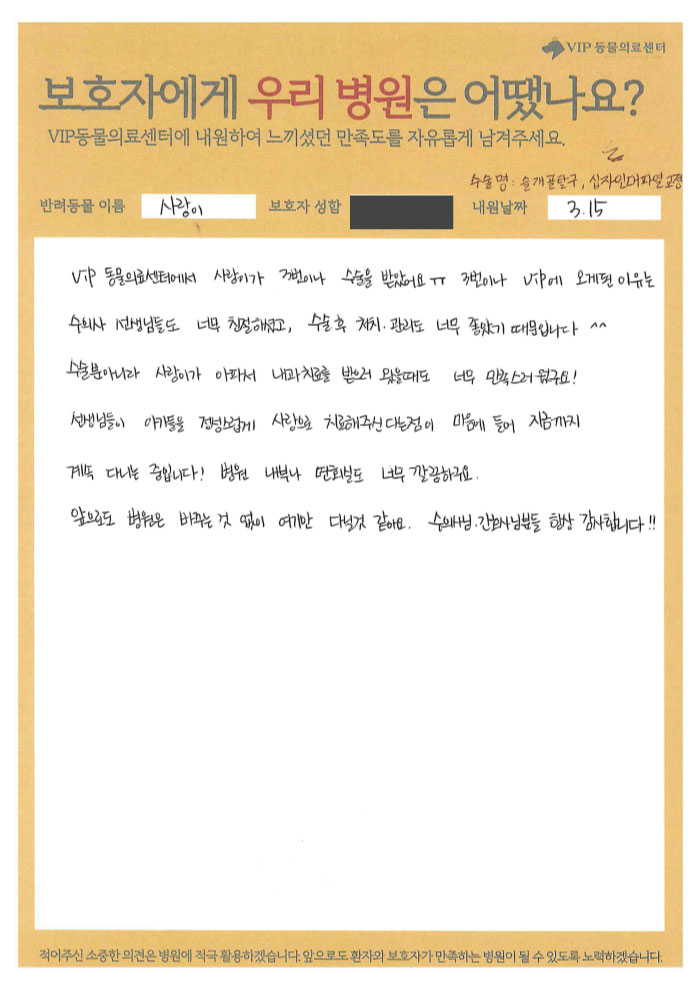 VIP 동물의료센터
보호자에게 우리 병원은 어땠나요?
VIP동물의료센터에 내원하여 느끼셨던 만족도를 자유롭게 남겨주세요.
수술명: 슬개골탈구, 십자인대파열교정
반려동물 이름 사랑이 보호자 성함 내원날짜 3.15
VIP 동물의료센터에서 사랑이가 3번이나 수술을 받았어요ㅠㅠ 3번이나 VIP에 오게된 이유는
수의사 선생님들도 너무 친절하셨고, 수술후 처치·관리도 너무 좋았기 때문입니다 ^^
수술뿐아니라 사랑이가 아파서 내과치료를 받으러 왔을때도 너무 만족스러웠구요!
선생님들이 아가들을 정성스럽게 사랑으로 치료해주신다는점이 마음에 들어 지금까지
계속 다니는 중입니다! 병원 내부나 면회실도 너무 깔끔하구요.
앞으로도 병원은 바꾸는 것 없이 여기만 다닐것 같아요. 수의사님·간호사님분들 항상 감사합니다!!
적어주신 소중한 의견은 병원에 적극 활용하겠습니다. 앞으로도 환자와 보호자가 만족하는 병원이 될 수 있도록 노력하겠습니다.